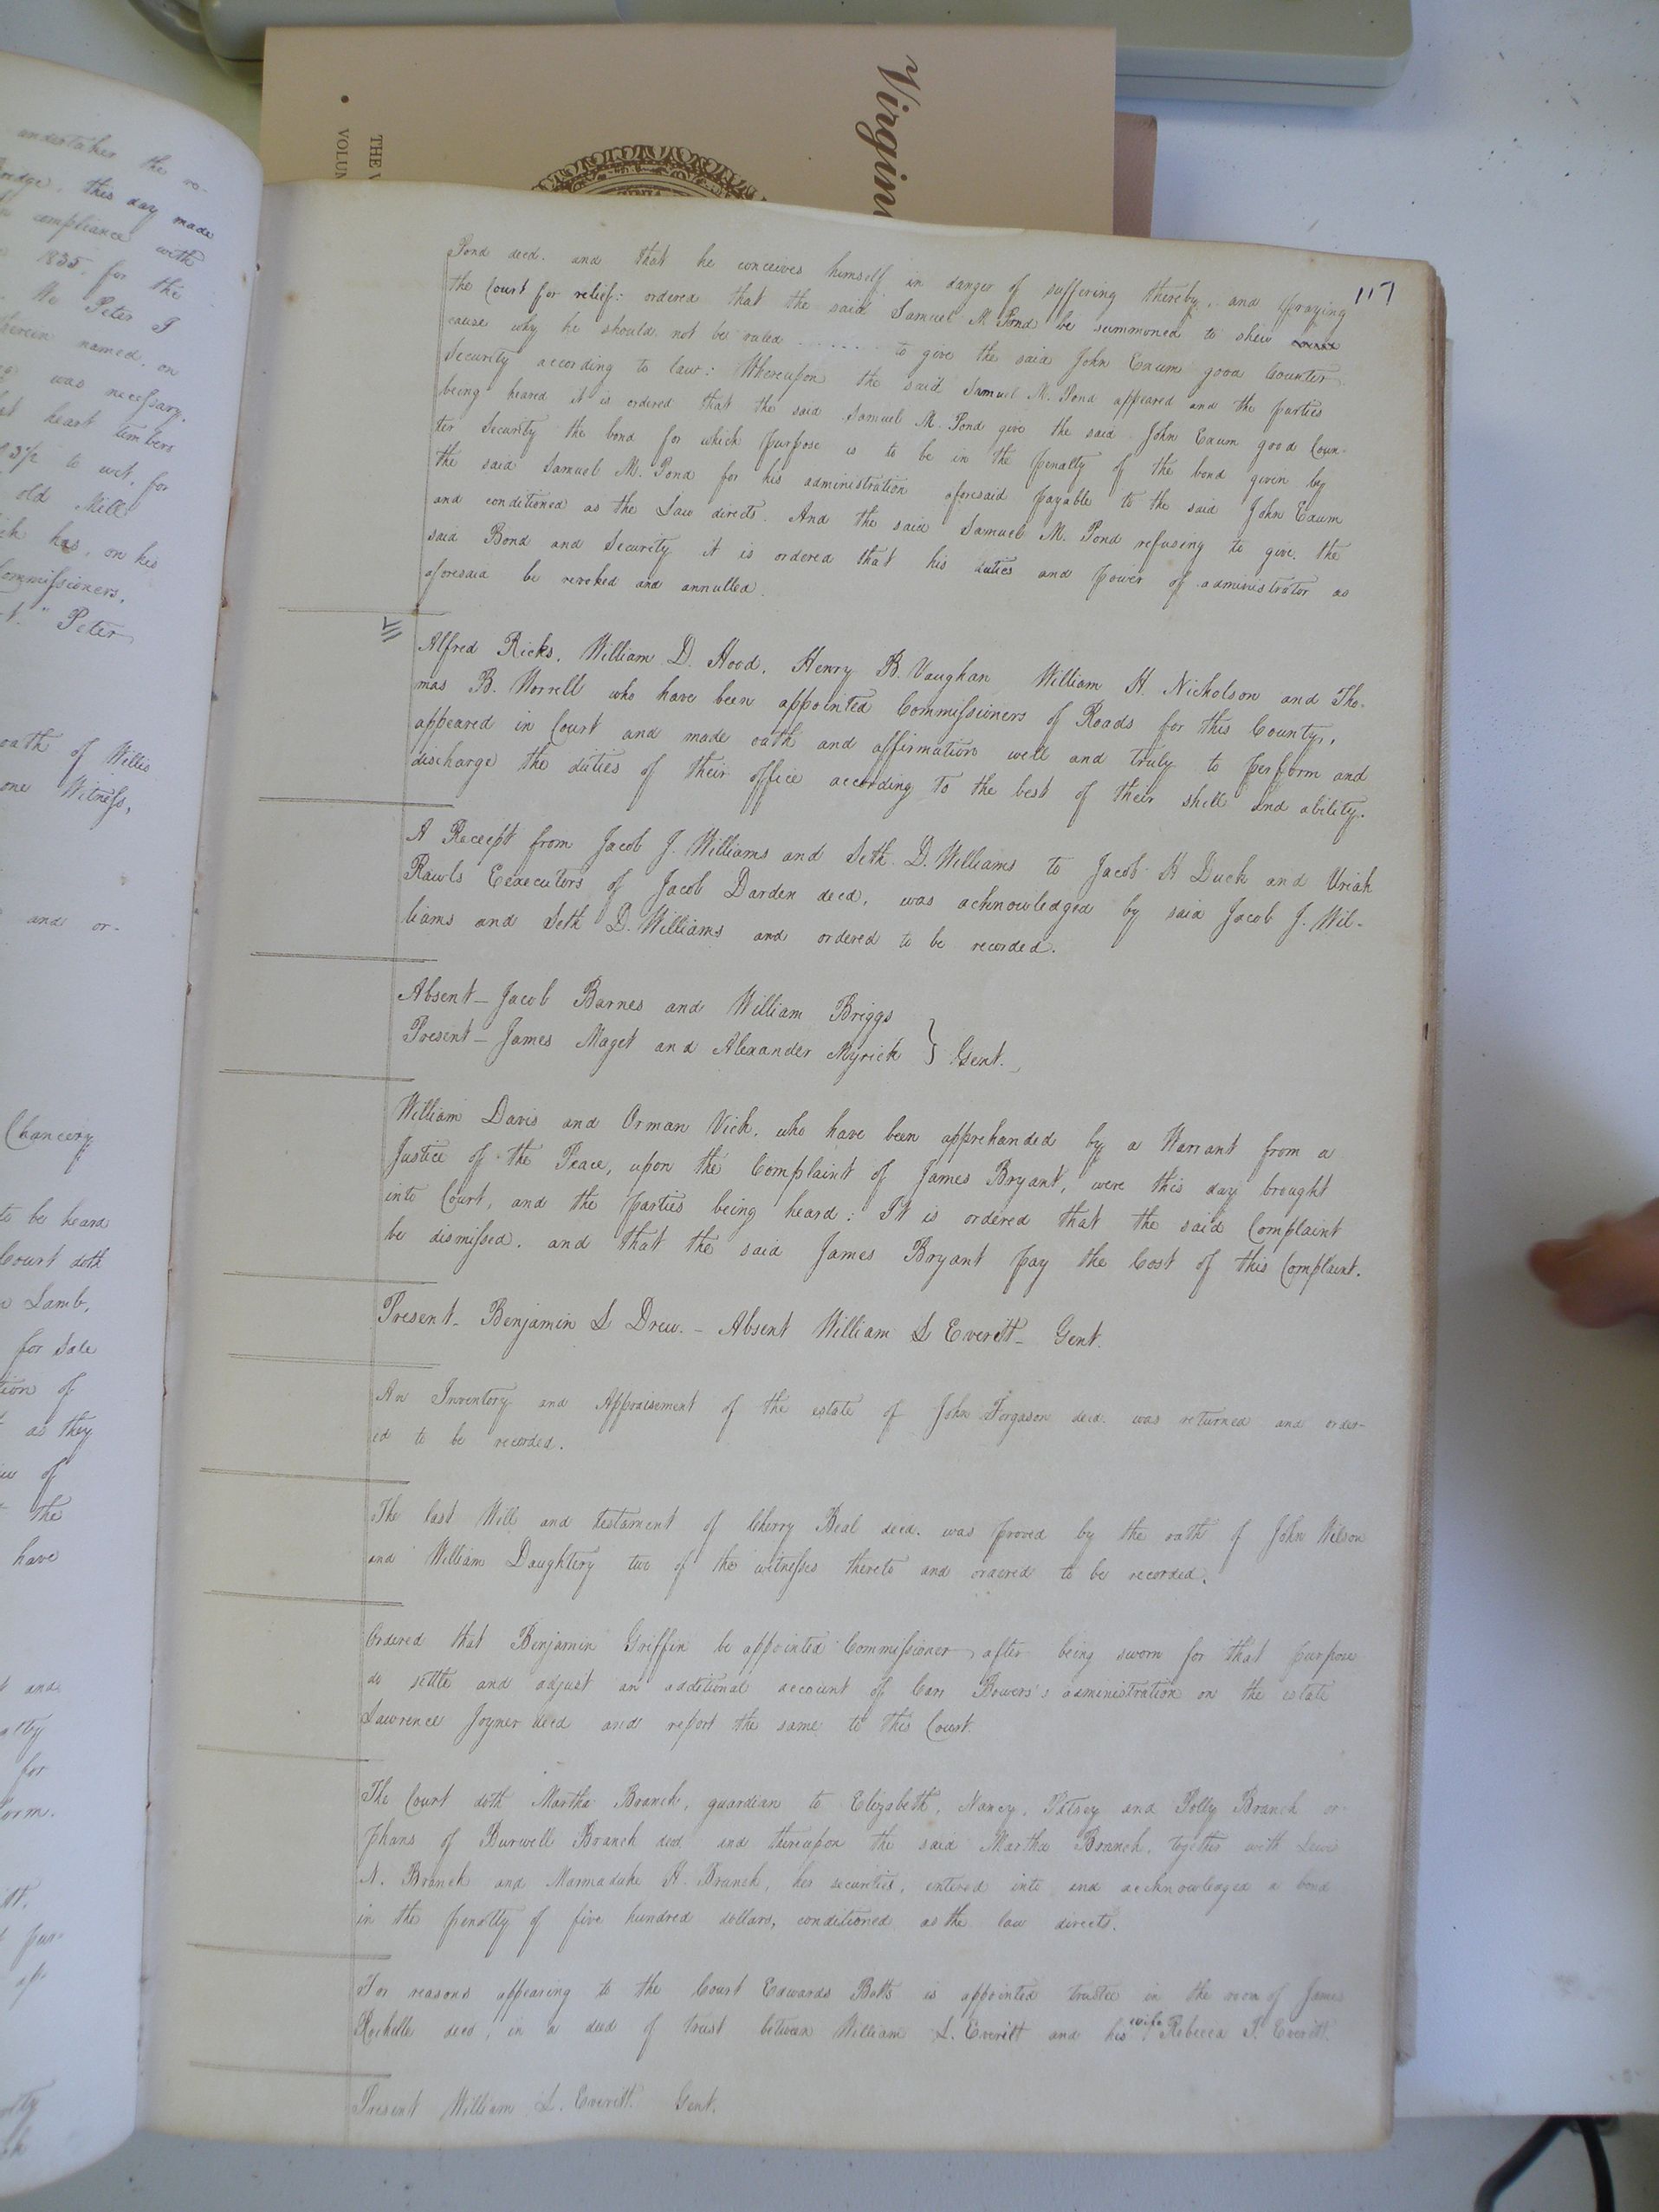 Virgin
THE V
VOLUM
undertaken the re-
bridge, this day made
compliance with
1835, for the
Peter
herein named, on
was necessary.
heart timbers
to wit, for
old Mill
has, on his
Commissioners.
Peter
oath of Willis
one Witness,
and or-
Chancery
to be heard
Court doth
Lamb,
for sale
tion of
as they
of
the
have
and
for
form.
117
Pond decd. and that he conceives himself in danger of suffering thereby, and praying
the Court for relief: ordered that the said Samuel M. Pond be summoned to shew
cause why he should not be ruled ....... to give the said John Exum good Counter
Security according to law: Whereupon the said Samuel M. Pond appeared and the parties
being heared it is ordered that the said Samuel M. Pond give the said John Exum good Coun-
ter Security the bond for which purpose is to be in the penalty of the bond given by
the said Samuel M. Pond for his administration aforesaid payable to the said John Exum
and conditioned as the Law directs. And the said Samuel M. Pond refusing to give the
said Bond and Security it is ordered that his duties and power of administrator as
aforesaid be revoked and annulled.
Alfred Ricks, William D. Hood, Henry B. Vaughan William H. Nicholson and Tho-
mas B. Worrell who have been appointed Commissioners of Roads for this County,
appeared in Court and made oath and affirmation well and truly to perform and
discharge the duties of their office according to the best of their skill and ability.
A Receept from Jacob J. Williams and Seth D. Williams to Jacob H Duck and Uriah
Rawls Eexecutors of Jacob Darden decd, was acknowledged by said Jacob J. Wil-
liams and Seth D. Williams and ordered to be recorded.
Absent – Jacob Barnes and William Briggs
Present – James Maget and Alexander Myrick } Gent.
William Davis and Orman Vick, who have been apprehanded by a Warrant from a
Justice of the Peace, upon the Complaint of James Bryant, were this day brought
into Court, and the parties being heard: It is ordered that the said Complaint
be dismissed, and that the said James Bryant pay the Cost of this Complaint.
Present – Benjamin L Drew. – Absent William L Everett – Gent.
An Inventory and Appraisement of the estate of John Forgason decd. was returned and order-
ed to be recorded.
The last Will and testament of Cherry Beal decd. was proved by the oath of John Wilson
and William Daughtery two of the witnesses thereto and ordered to be recorded.
Ordered that Benjamin Griffin be appointed Commissioner, after being sworn for that purpose
do settle and adjust an additional account of Carr Bowers's administration on the estate
Lawrence Joyner decd and report the same to this Court.
The Court doth Martha Branch, guardian to Elizabeth, Nancy, Patsey and Polly Branch or-
phans of Burwell Branch decd and thereupon the said Martha Branch, together with Lewis
N. Branch and Marmaduke H. Branch, her securities, entered into and acknowledged a bond
in the penalty of five hundred dollars, conditioned as the law directs.
For reasons appearing to the Court Edwards Butts is appointed trustee in the room of James
Rochelle decd, in a deed of trust between William L. Everitt and his wife Rebecca T. Everitt.
Present William L. Everett. Gent.